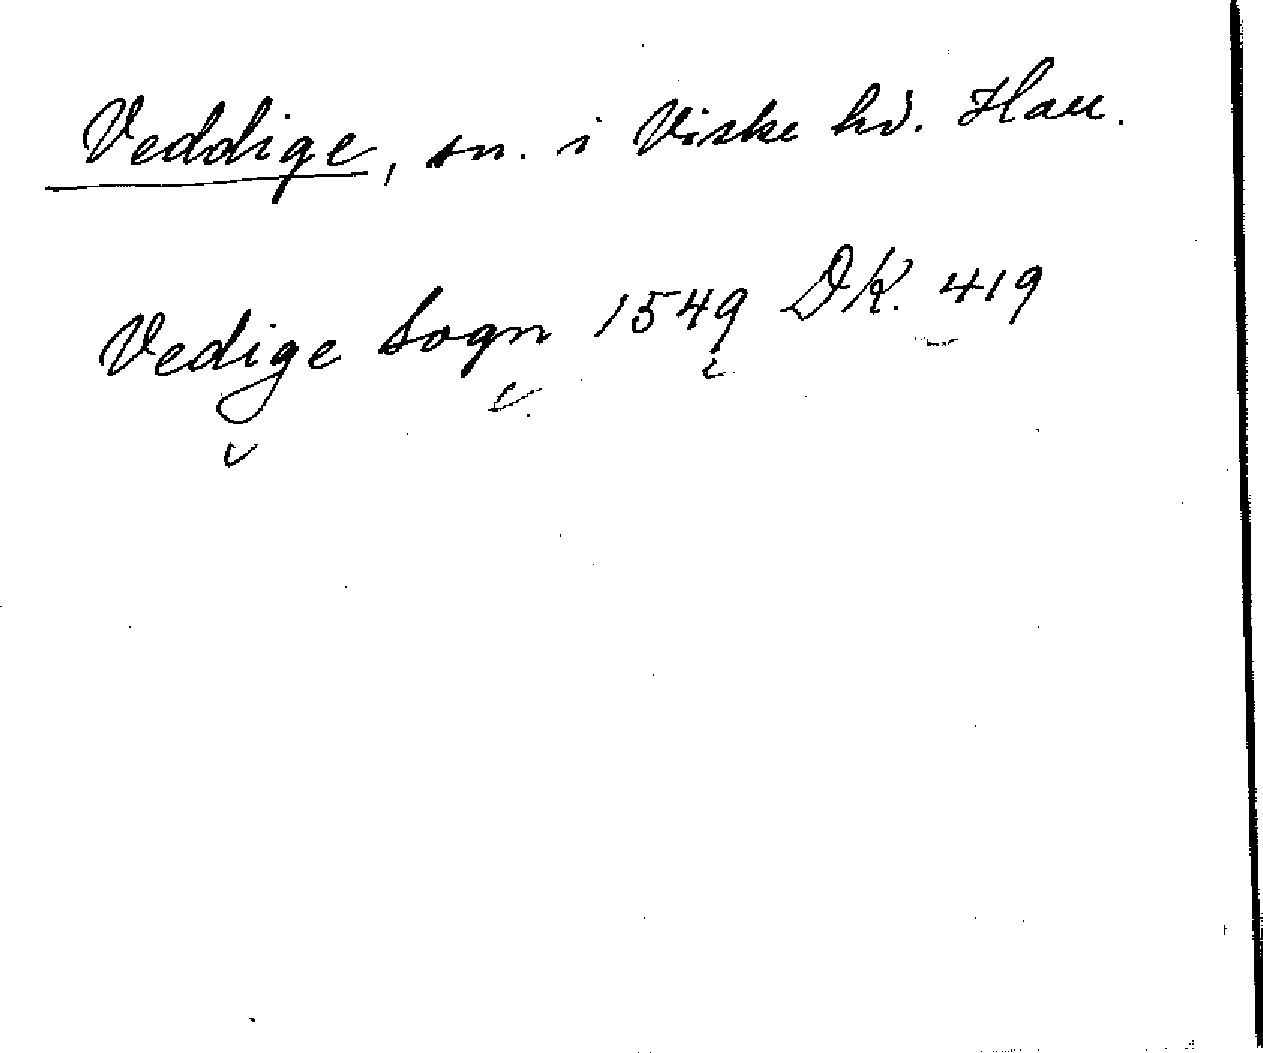 Veddige, sn. i Viske hd. Hall.
Vedige Sogn 1549 DK. 419